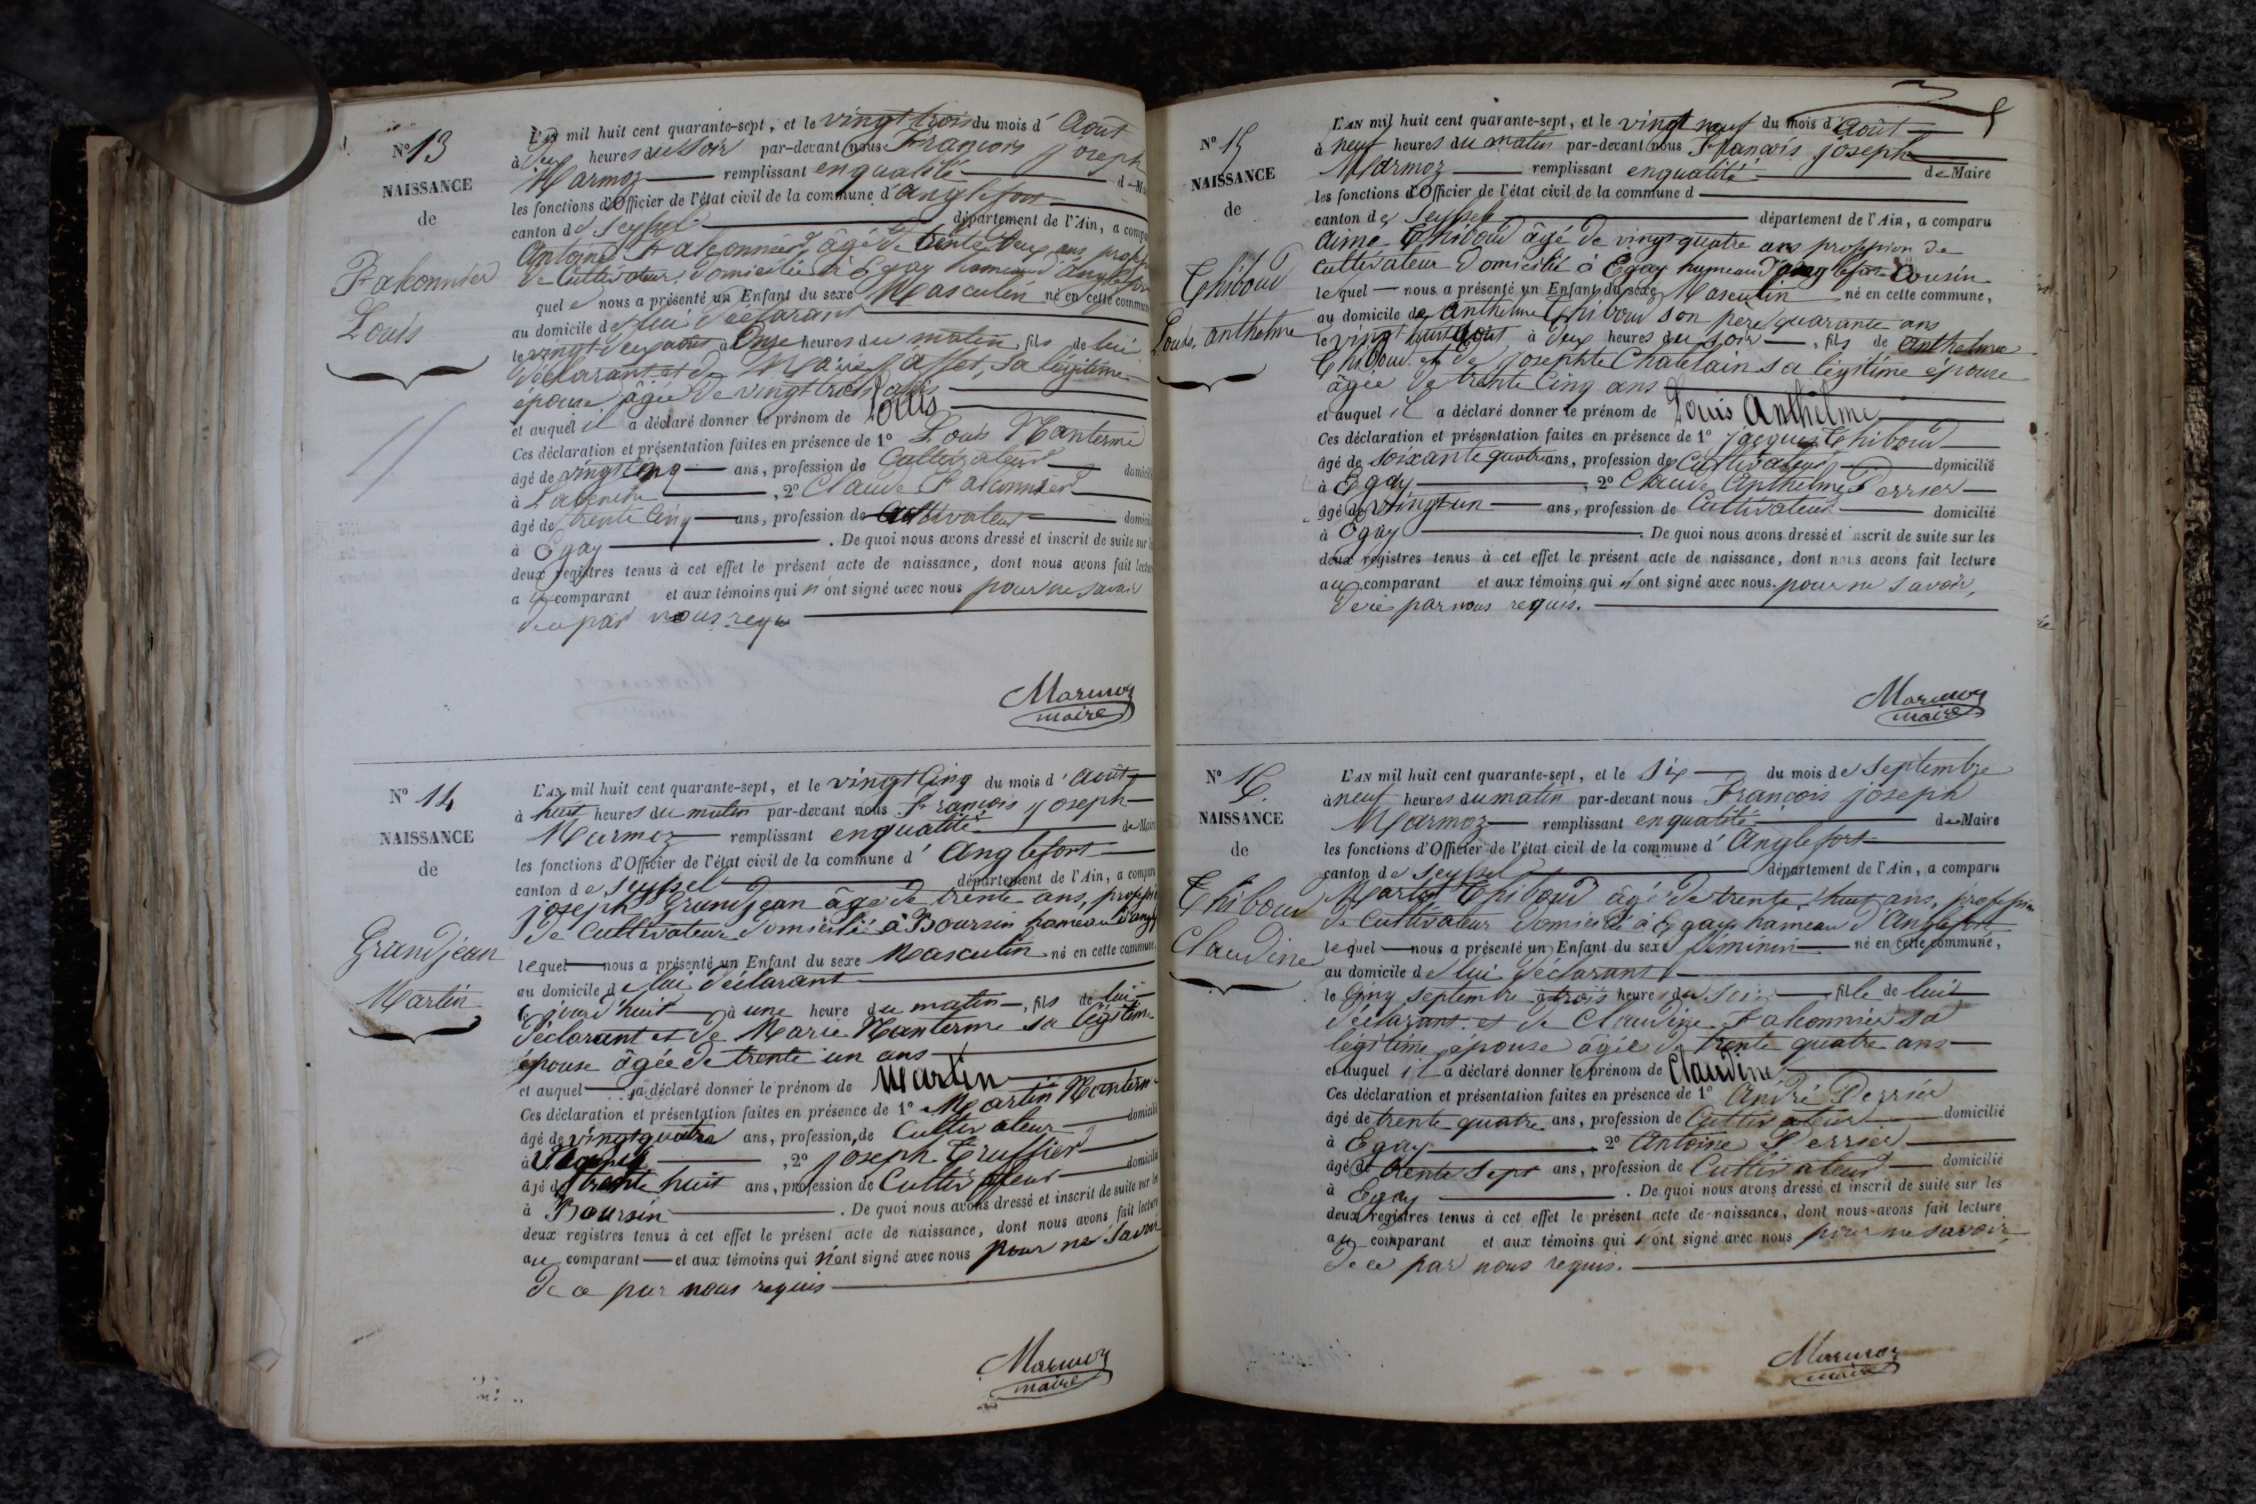 N° 13
NAISSANCE
de
Falconnier
Louis
L'AN mil huit cent quarante-sept, et le vingt trois du mois d'Août
à heures du soir par-devant nous François joseph
Marmoz remplissant en qualité de
les fonctions d'Officier de l'état civil de la commune d'anglefort
canton de Seyssel département de l'Ain, a
Antoine Falconnier âgé de trente deux ans
de Cultivateur domicilié à Egay hameau
quel nous a présenté un Enfant du sexe Masculin né en cette
au domicile de lui déclarant
le vingt deux août à Onze heures du matin, fils de lui
déclarant et de Marie sa légitime
épouse âgée de vingt trois ans
et auquel il a déclaré donner le prénom de Louis
Ces déclaration et présentation faites en présence de 1° Louis Manterme
âgé de vingt cinq ans, profession de Cultivateur
à , 2° Claude Falconnier
âgé de trente cinq ans, profession de Cultivateur
à Egay . De quoi nous avons dressé et inscrit de suite sur
deux registres tenus à cet effet le présent acte de naissance, dont nous avons fait
au comparant et aux témoins qui n'ont signé avec nous pour ne savoir
de ce par nous requis
Marmoz
maire
N° 14
NAISSANCE
de
Grandjean
Martin
L'AN mil huit cent quarante-sept, et le vingt Cinq du mois d'Août
à huit heures du matin par-devant nous François joseph
Marmoz remplissant en qualité de
les fonctions d'Officier de l'état civil de la commune d'Anglefort
canton de Seyssel département de l'Ain, a
joseph Grandjean âgé de trente ans,
de Cultivateur domicilié à Boursin hameau
lequel nous a présenté un Enfant du sexe Masculin né en cette
au domicile de lui déclarant
à une heure du matin, fils de lui
déclarant et de Marie Manterme sa légitime
épouse âgée de trente un ans
et auquel a déclaré donner le prénom de Martin
Ces déclaration et présentation faites en présence de 1° Martin
âgé de vingt quatre ans, profession de Cultivateur
à , 2° joseph Truffier
âgé de trente huit ans, profession de Cultivateur
à Boursin . De quoi nous avons dressé et inscrit de suite sur
deux registres tenus à cet effet le présent acte de naissance, dont nous avons fait
au comparant et aux témoins qui n'ont signé avec nous pour ne savoir
de ce par nous requis
Marmoz
maire
N° 15
NAISSANCE
de
Thiboud
Louis, anthelme
L'AN mil huit cent quarante-sept, et le vingt neuf du mois d'août
à neuf heures du matin par-devant nous François joseph
Marmoz remplissant en qualité de Maire
les fonctions d'Officier de l'état civil de la commune d
canton de Seyssel département de l'Ain, a comparu
aimé Thiboud âgé de vingt quatre ans profession de
Cultivateur domicilié à Egay hameau d'anglefort Cousin
lequel nous a présenté un Enfant du sexe Masculin né en cette commune,
au domicile de Anthelme Thiboud son père quarante ans
le vingt huit août à deux heures du soir, fils de anthelme
Thiboud et de josephte Chatelain sa légitime épouse
âgée de trente Cinq ans
et auquel il a déclaré donner le prénom de Louis Anthelme
Ces déclaration et présentation faites en présence de 1° jacques Thiboud
âgé de soixante quatre ans, profession de Cultivateur domicilié
à Egay , 2° Claude Anthelme Perrier
âgé de vingt un ans, profession de Cultivateur domicilié
à Egay . De quoi nous avons dressé et inscrit de suite sur les
deux registres tenus à cet effet le présent acte de naissance, dont nous avons fait lecture
au comparant et aux témoins qui n'ont signé avec nous pour ne savoir,
de ce par nous requis.
Marmoz
maire
N° 16
NAISSANCE
de
Thiboud
Claudine
L'AN mil huit cent quarante-sept, et le six du mois de septembre
à neuf heures du matin par-devant nous François joseph
Marmoz remplissant en qualité de Maire
les fonctions d'Officier de l'état civil de la commune d'Anglefort
canton de Seyssel département de l'Ain, a comparu
Martin Thiboud âgé de trente huit ans, profession
de Cultivateur domicilié à Egay hameau d'Anglefort
lequel nous a présenté un Enfant du sexe féminin né en cette commune,
au domicile de lui déclarant
le Cinq septembre à trois heures du soir fille de lui
déclarant et de Claudine Falconnier sa
légitime épouse âgée de trente quatre ans
et auquel il a déclaré donner le prénom de Claudine
Ces déclaration et présentation faites en présence de 1° André Perrier
âgé de trente quatre ans, profession de Cultivateur domicilié
à Egay 2° Antoine Perrier
âgé de trente sept ans, profession de Cultivateur domicilié
à Egay . De quoi nous avons dressé et inscrit de suite sur les
deux registres tenus à cet effet le présent acte de naissance, dont nous avons fait lecture
au comparant et aux témoins qui n'ont signé avec nous pour ne savoir
de ce par nous requis.
Marmoz
maire